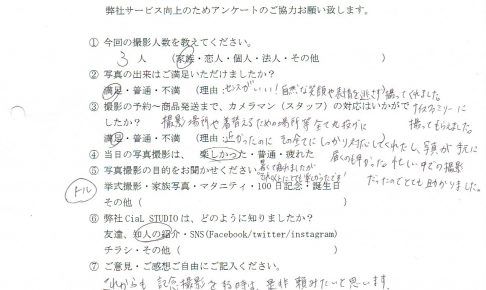 弊社サービス向上のためアンケートのご協力お願い致します。
① 今回の撮影人数を教えてください。
3 人 （家族・恋人・個人・法人・その他 ）
② 写真の出来はご満足いただけましたか？
満足・普通・不満 （理由：センスがいい！自然な笑顔や表情を逃さず撮ってくれました。
③ 撮影の予約～商品発送まで、カメラマン（スタッフ）の対応はいかがで
したか？ 撮影場所や着替えるための場所等全て丸投げに
撮ってもらえました。
満足・普通・不満 （理由： 近かったのに その全てにしっかり対応してくれたし、写真が手元に
④ 当日の写真撮影は、 楽しかった・普通・疲れた
届くのも早かった 忙しい中での撮影
⑤ 写真撮影の目的をお聞かせください。
暑くて疲れましたが
だったのでとても助かりました。
挙式撮影・家族写真・マタニティ・100日記念・誕生日
その他（ ）
⑥ 弊社 CiaL STUDIO は、どのように知りましたか？
友達、知人の紹介・SNS(Facebook/twitter/instagram)
チラシ・その他（ ）
⑦ ご意見・ご感想ご自由にご記入ください。
これからも 記念撮影をする時は、是非 頼みたいと思います。